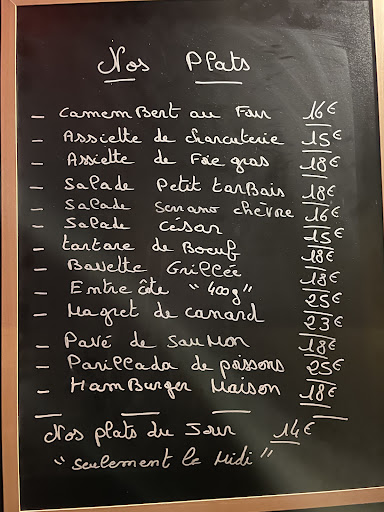 Nos Plats
- Camembert au Four 16€
- Assiette de charcuterie 15€
- Assiette de Foie gras 18€
- Salade Petit tarbais 18€
- Salade Serrano chèvre 16€
- Salade César 15€
- tartare de Boeuf 18€
- Bavette Grillée 18€
- Entrecôte "400g" 25€
- Magret de canard 23€
- Pavé de Saumon 18€
- Parillada de poissons 25€
- HamBurger Maison 18€
Nos plats du Jour 14€
"seulement le Midi"